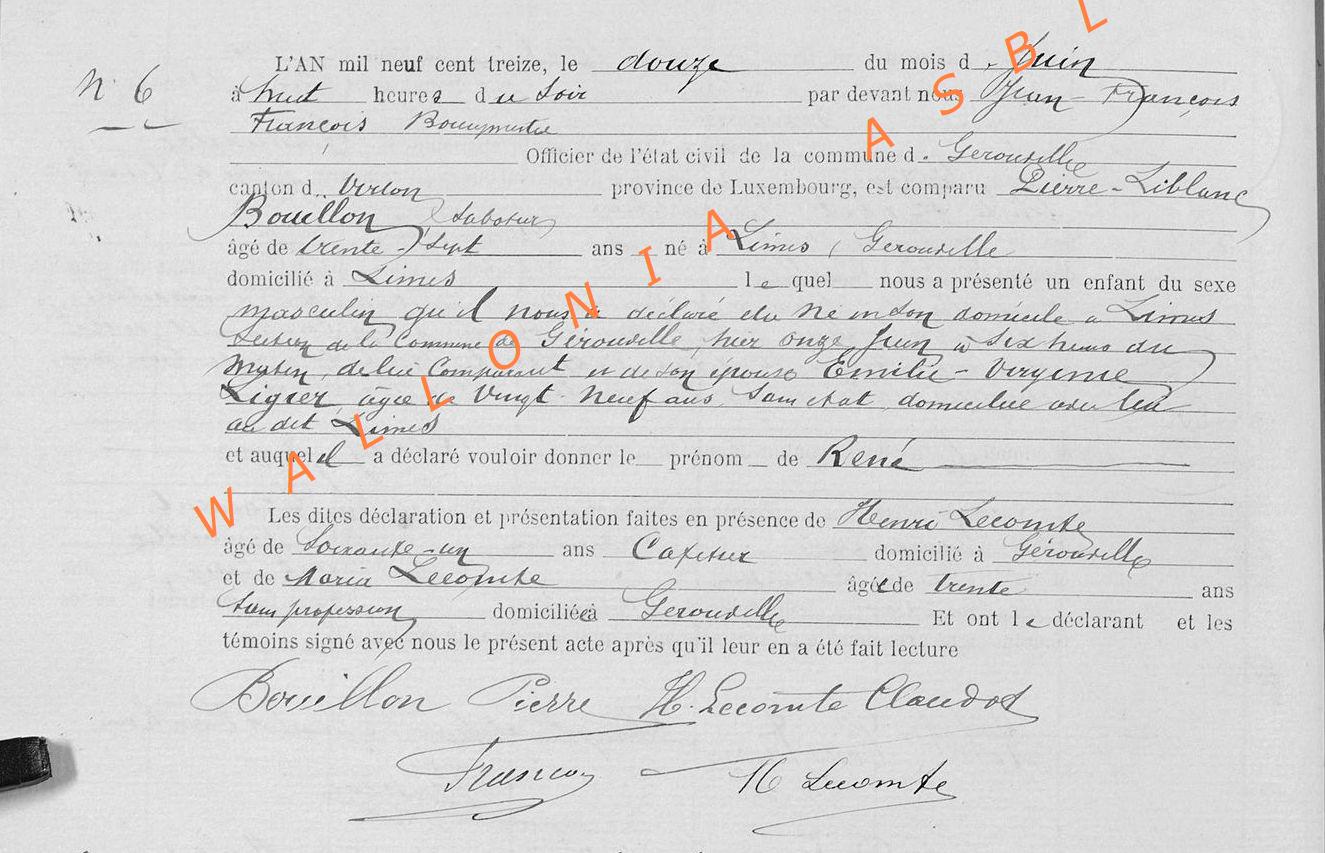 N° 6
L'AN mil neuf cent treize, le douze du mois d. Juin
à huit heures du soir par devant nous Jean-François
François Bourgmestre
Officier de l'état civil de la commune d. Gerouville
canton d. Virton province de Luxembourg, est comparu Pierre-
Bouillon Sabotier
âgé de trente-sept ans né à Limes, Gerouville
domicilié à Limes lequel nous a présenté un enfant du sexe
masculin qu'il nous a déclaré être né en son domicile à Limes
Section de la Commune de Gérouville, hier onze Juin à six heures du
matin, de lui Comparant et de son épouse Emilie-Virginie
Ligier âgée de Vingt-neuf ans, Sans état, domiciliée
au dit Limes
et auquel il a déclaré vouloir donner le prénom de René
Les dites déclaration et présentation faites en présence de Henri Lecomte
âgé de Soixante-un ans domicilié à Gérouville
et de Maria Lecomte âgée de trente ans
Sans profession domiciliée à Gerouville Et ont le déclarant et les
témoins signé avec nous le présent acte après qu'il leur en a été fait lecture
Bouillon Pierre H. Lecomte Claudot
François M Lecomte
WALLONIA ASBL